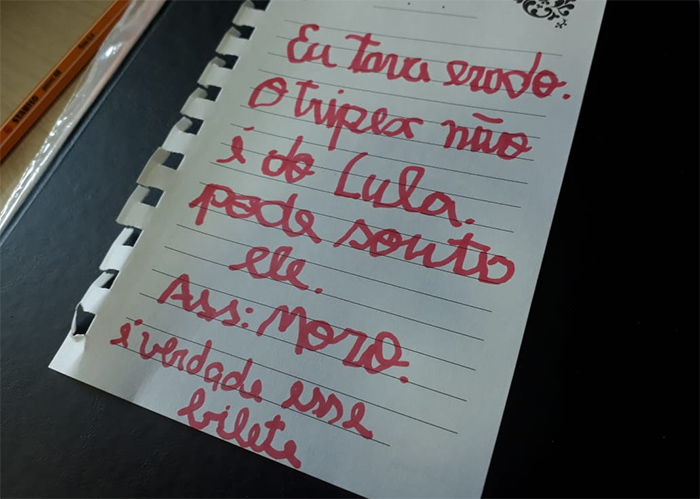 Eu tava erado.
O triplex não
é do Lula.
pode souto
ele.
Ass: Moro.
é verdade esse
bilete